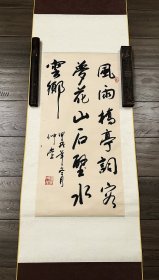 風雨橋亭詞客
夢花山石壁水
雲鄉
甲戌年冬月
仲堂